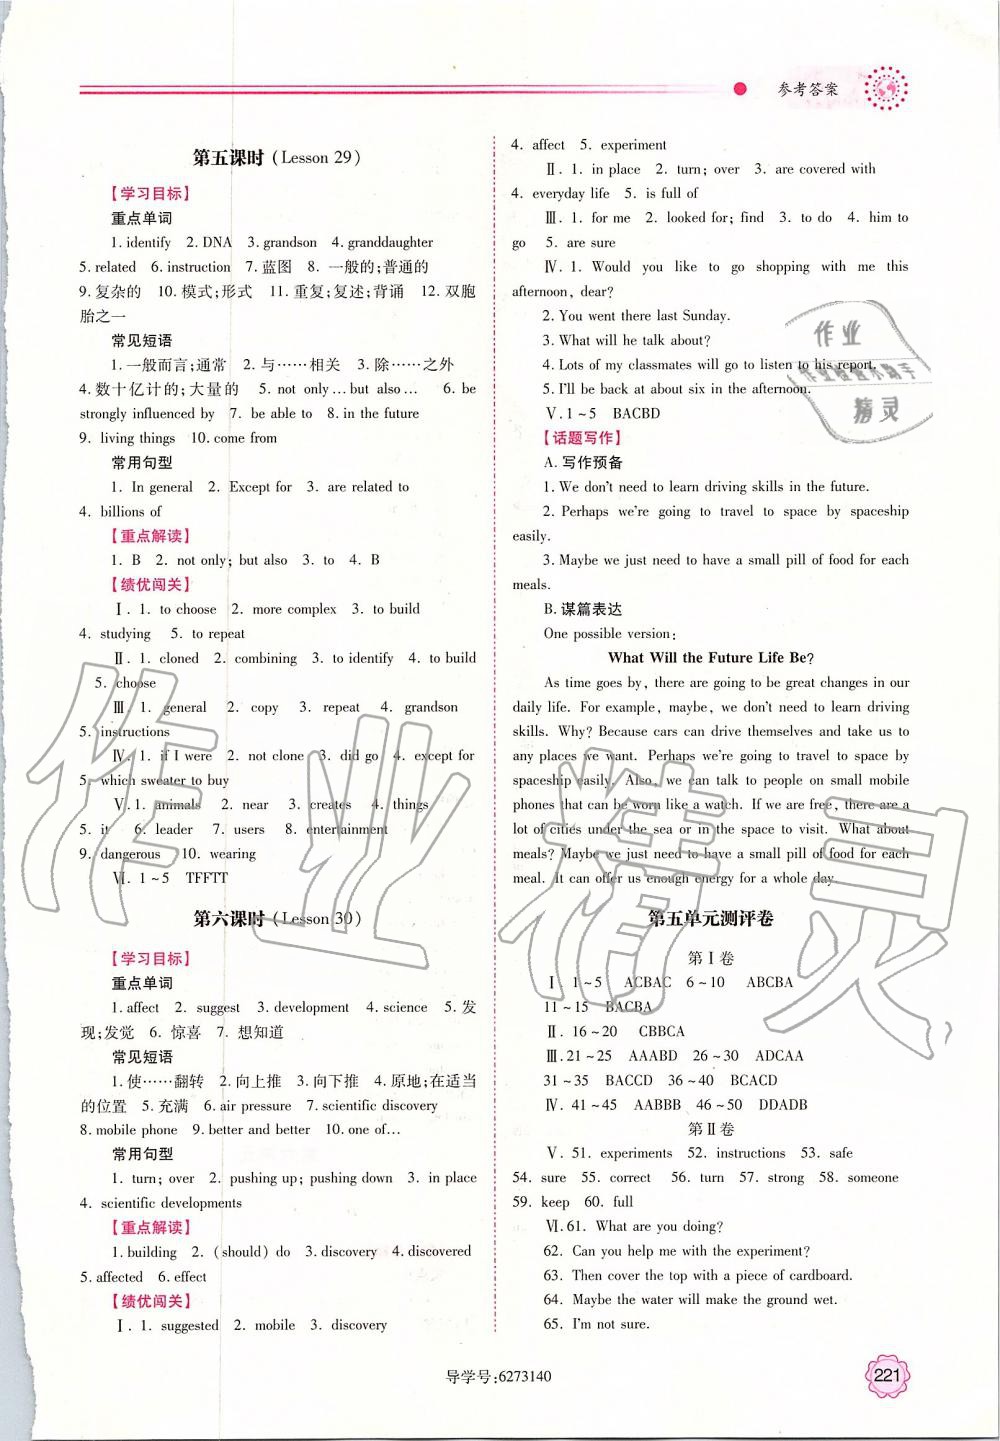 参考答案
第五课时 (Lesson 29)
【学习目标】
重点单词
1. identify 2. DNA 3. grandson 4. granddaughter
5. related 6. instruction 7. 蓝图 8. 一般的;普通的
9. 复杂的 10. 模式;形式 11. 重复;复述;背诵 12. 双胞
胎之一
常见短语
1. 一般而言;通常 2. 与……相关 3. 除……之外
4. 数十亿计的;大量的 5. not only…but also… 6. be
strongly influenced by 7. be able to 8. in the future
9. living things 10. come from
常用句型
1. In general 2. Except for 3. are related to
4. billions of
【重点解读】
1. B 2. not only; but also 3. to 4. B
【绩优闯关】
Ⅰ. 1. to choose 2. more complex 3. to build
4. studying 5. to repeat
Ⅱ. 1. cloned 2. combining 3. to identify 4. to build
5. choose
Ⅲ. 1. general 2. copy 3. repeat 4. grandson
5. instructions
Ⅳ. 1. if I were 2. not clone 3. did go 4. except for
5. which sweater to buy
Ⅴ. 1. animals 2. near 3. creates 4. things
5. it 6. leader 7. users 8. entertainment
9. dangerous 10. wearing
Ⅵ. 1~5 TFFTT
第六课时 (Lesson 30)
【学习目标】
重点单词
1. affect 2. suggest 3. development 4. science 5. 发
现;发觉 6. 惊喜 7. 想知道
常见短语
1. 使……翻转 2. 向上推 3. 向下推 4. 原地;在适当
的位置 5. 充满 6. air pressure 7. scientific discovery
8. mobile phone 9. better and better 10. one of…
常用句型
1. turn; over 2. pushing up; pushing down 3. in place
4. scientific developments
【重点解读】
1. building 2. (should) do 3. discovery 4. discovered
5. affected 6. effect
【绩优闯关】
Ⅰ. 1. suggested 2. mobile 3. discovery
4. affect 5. experiment
Ⅱ. 1. in place 2. turn; over 3. are covered with
4. everyday life 5. is full of
Ⅲ. 1. for me 2. looked for; find 3. to do 4. him to
go 5. are sure
Ⅳ. 1. Would you like to go shopping with me this
afternoon, dear?
2. You went there last Sunday.
3. What will he talk about?
4. Lots of my classmates will go to listen to his report.
5. I'll be back at about six in the afternoon.
Ⅴ. 1~5 BACBD
【话题写作】
A. 写作预备
1. We don't need to learn driving skills in the future.
2. Perhaps we're going to travel to space by spaceship
easily.
3. Maybe we just need to have a small pill of food for each
meals.
B. 谋篇表达
One possible version:
What Will the Future Life Be?
As time goes by, there are going to be great changes in our
daily life. For example, maybe, we don't need to learn driving
skills. Why? Because cars can drive themselves and take us to
any places we want. Perhaps we're going to travel to space by
spaceship easily. Also, we can talk to people on small mobile
phones that can be worn like a watch. If we are free, there are a
lot of cities under the sea or in the space to visit. What about
meals? Maybe we just need to have a small pill of food for each
meal. It can offer us enough energy for a whole day.
第五单元测评卷
第Ⅰ卷
Ⅰ. 1~5 ACBAC 6~10 ABCBA
11~15 BACBA
Ⅱ. 16~20 CBBCA
Ⅲ. 21~25 AAABD 26~30 ADCAA
31~35 BACCD 36~40 BCACD
Ⅳ. 41~45 AABBB 46~50 DDADB
第Ⅱ卷
Ⅴ. 51. experiments 52. instructions 53. safe
54. sure 55. correct 56. turn 57. strong 58. someone
59. keep 60. full
Ⅵ. 61. What are you doing?
62. Can you help me with the experiment?
63. Then cover the top with a piece of cardboard.
64. Maybe the water will make the ground wet.
65. I'm not sure.
作业
精灵
作业精灵
导学号:6273140
221